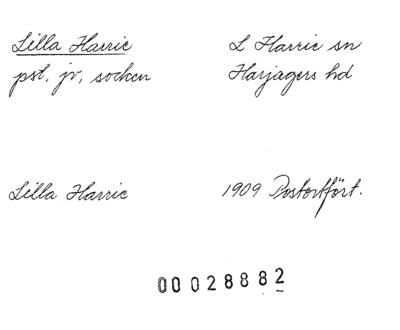 Lilla Harrie
L Harrie sn
pst, jv, socken
Harjagers hd
Lilla Harrie
1909 Postortfört.
00028882